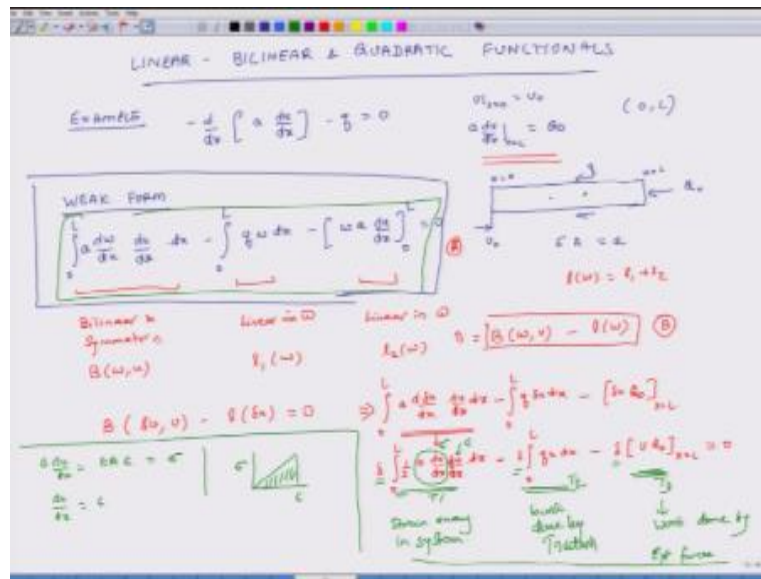 LINEAR - BILINEAR & QUADRATIC FUNCTIONALS
EXAMPLE - d/dx [ a du/dx ] - q = 0
u|x=0 = u0 (0, L)
a du/dx |x=L = Q0
x=0 x=L
WEAK FORM
∫0^L a dw/dx du/dx dx - ∫0^L q w dx - [ w a du/dx ]0^L = 0 (A)
u0
l(w) = l1 + l2
Bilinear & Linear in w Linear in w
Symmetric
B(w,u) l1(w) l2(w) 0 = B(w,u) - l(w) (B)
B(δu, u) - l(δu) = 0 ⇒ ∫0^L a dδu/dx du/dx dx - ∫0^L q δu dx - [δu Q0]x=L
a du/dx = EAε = σ
du/dx = ε
σ
ε
δ ∫0^L 1/2 a du/dx du/dx dx - δ ∫0^L q u dx - δ [u Q0]x=L = 0
T1 T2 T3
Strain energy in system
work done by Traction
work done by Ext force